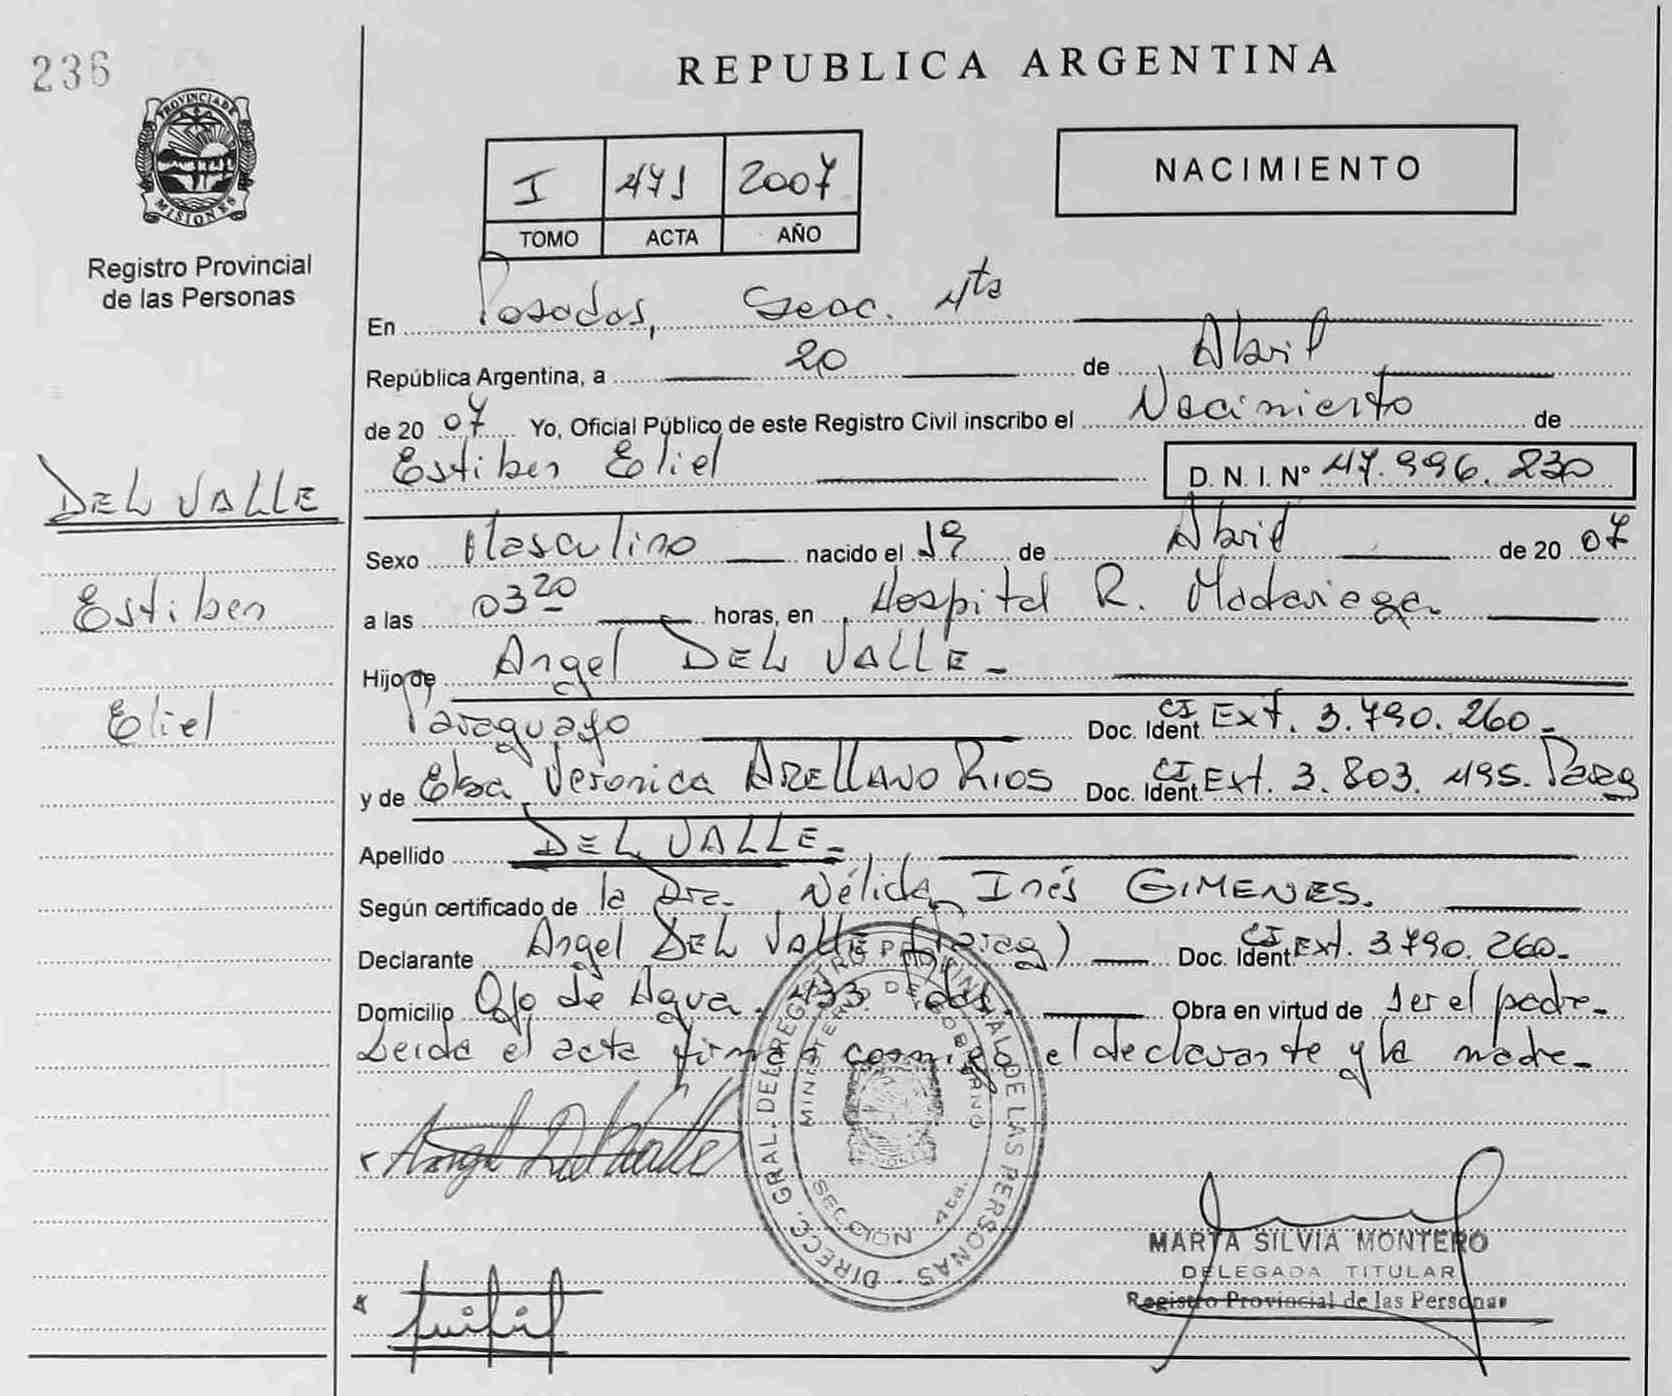 236
REPUBLICA ARGENTINA
PROVINCIA DE MISIONES
Registro Provincial
de las Personas
I 471 2007
TOMO ACTA AÑO
NACIMIENTO
En Posadas, Secc. 4ta
República Argentina, a 20 de Abril
de 2007 Yo, Oficial Público de este Registro Civil inscribo el Nacimiento de
Estiben Eliel D. N. I. N° 47.996.230
DEL VALLE
Estiben
Eliel
Sexo Masculino nacido el 19 de Abril de 2007
a las 03 20 horas, en Hospital R. Madariaga
Hijo de Angel DEL VALLE
Paraguayo Doc. Ident. CI Ext. 3.790.260
y de Elsa Veronica ARELLANO RIOS Doc. Ident. CI Ext. 3.803.495. Parag
Apellido DEL VALLE
Según certificado de la Dra. Nélida Inés GIMENES.
Declarante Angel DEL VALLE (Parag) Doc. Ident. CI Ext. 3790.260
Domicilio Ojo de Agua 433 Pdas. Obra en virtud de ser el padre
Leida el acta firman conmigo el declarante y la madre
Angel Del Valle
DIRECC. GRAL. DEL REGISTRO PROVINCIAL DE LAS PERSONAS
MINISTERIO DE GOBIERNO
SECCION 4ta.
MARTA SILVIA MONTERO
DELEGADA TITULAR
Registro Provincial de las Personas